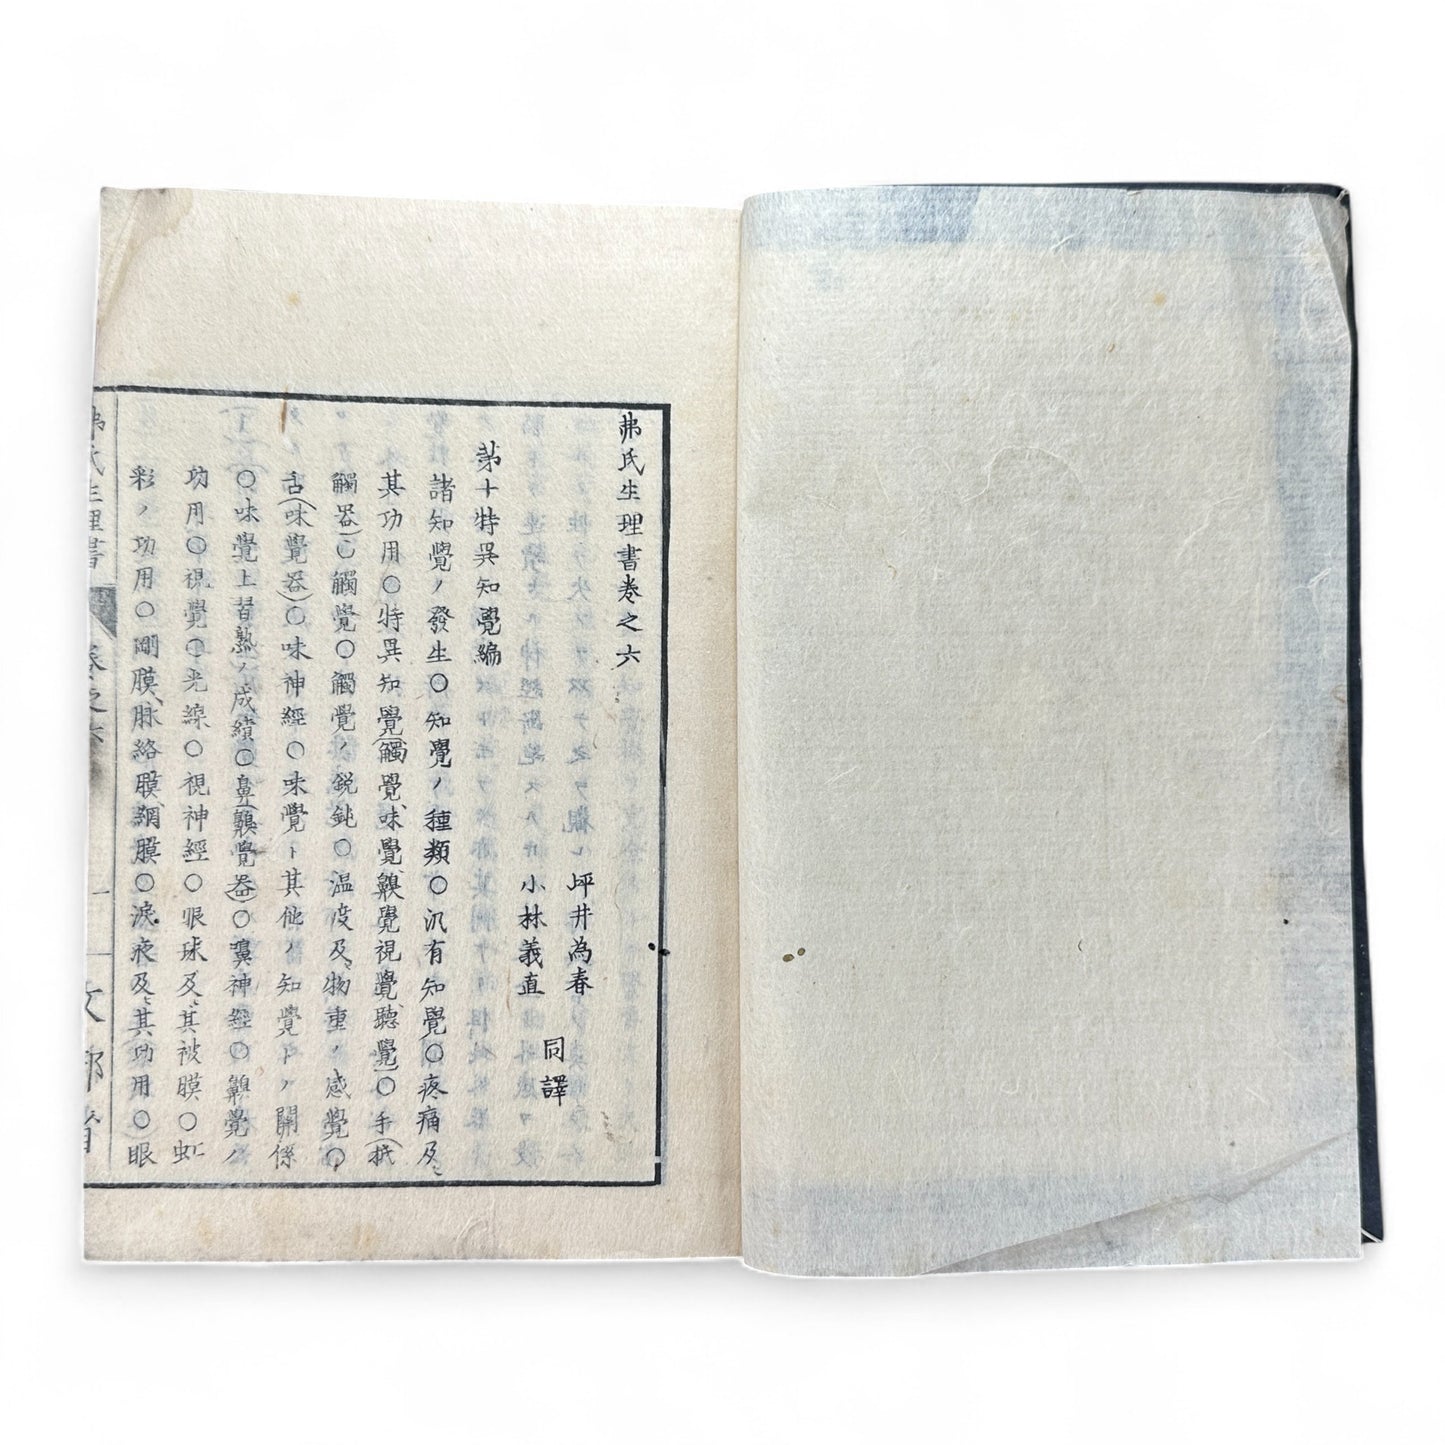 弗氏生理書卷之六
坪井為春
小林義直
同譯
第十特異知覺編
諸知覺ノ發生〇知覺ノ種類〇汎有知覺〇疼痛及ヒ
其功用〇特異知覺(觸覺、味覺、齅覺、視覺、聽覺)〇手(抵
觸器)〇觸覺〇觸覺ノ鋭鈍〇温度及ヒ物重ノ感覺〇
舌(味覺器)〇味神經〇味覺ト其他ノ知覺トノ關係
〇味覺上習熟ノ成績〇鼻(齅覺器)〇齅神經〇齅覺ノ
功用〇視覺〇光線〇視神經〇眼球及ヒ其被膜〇虹
彩ノ功用〇剛膜、脉絡膜、網膜〇淚液及ヒ其功用〇眼
弗氏生理書
卷之六
一
文部省